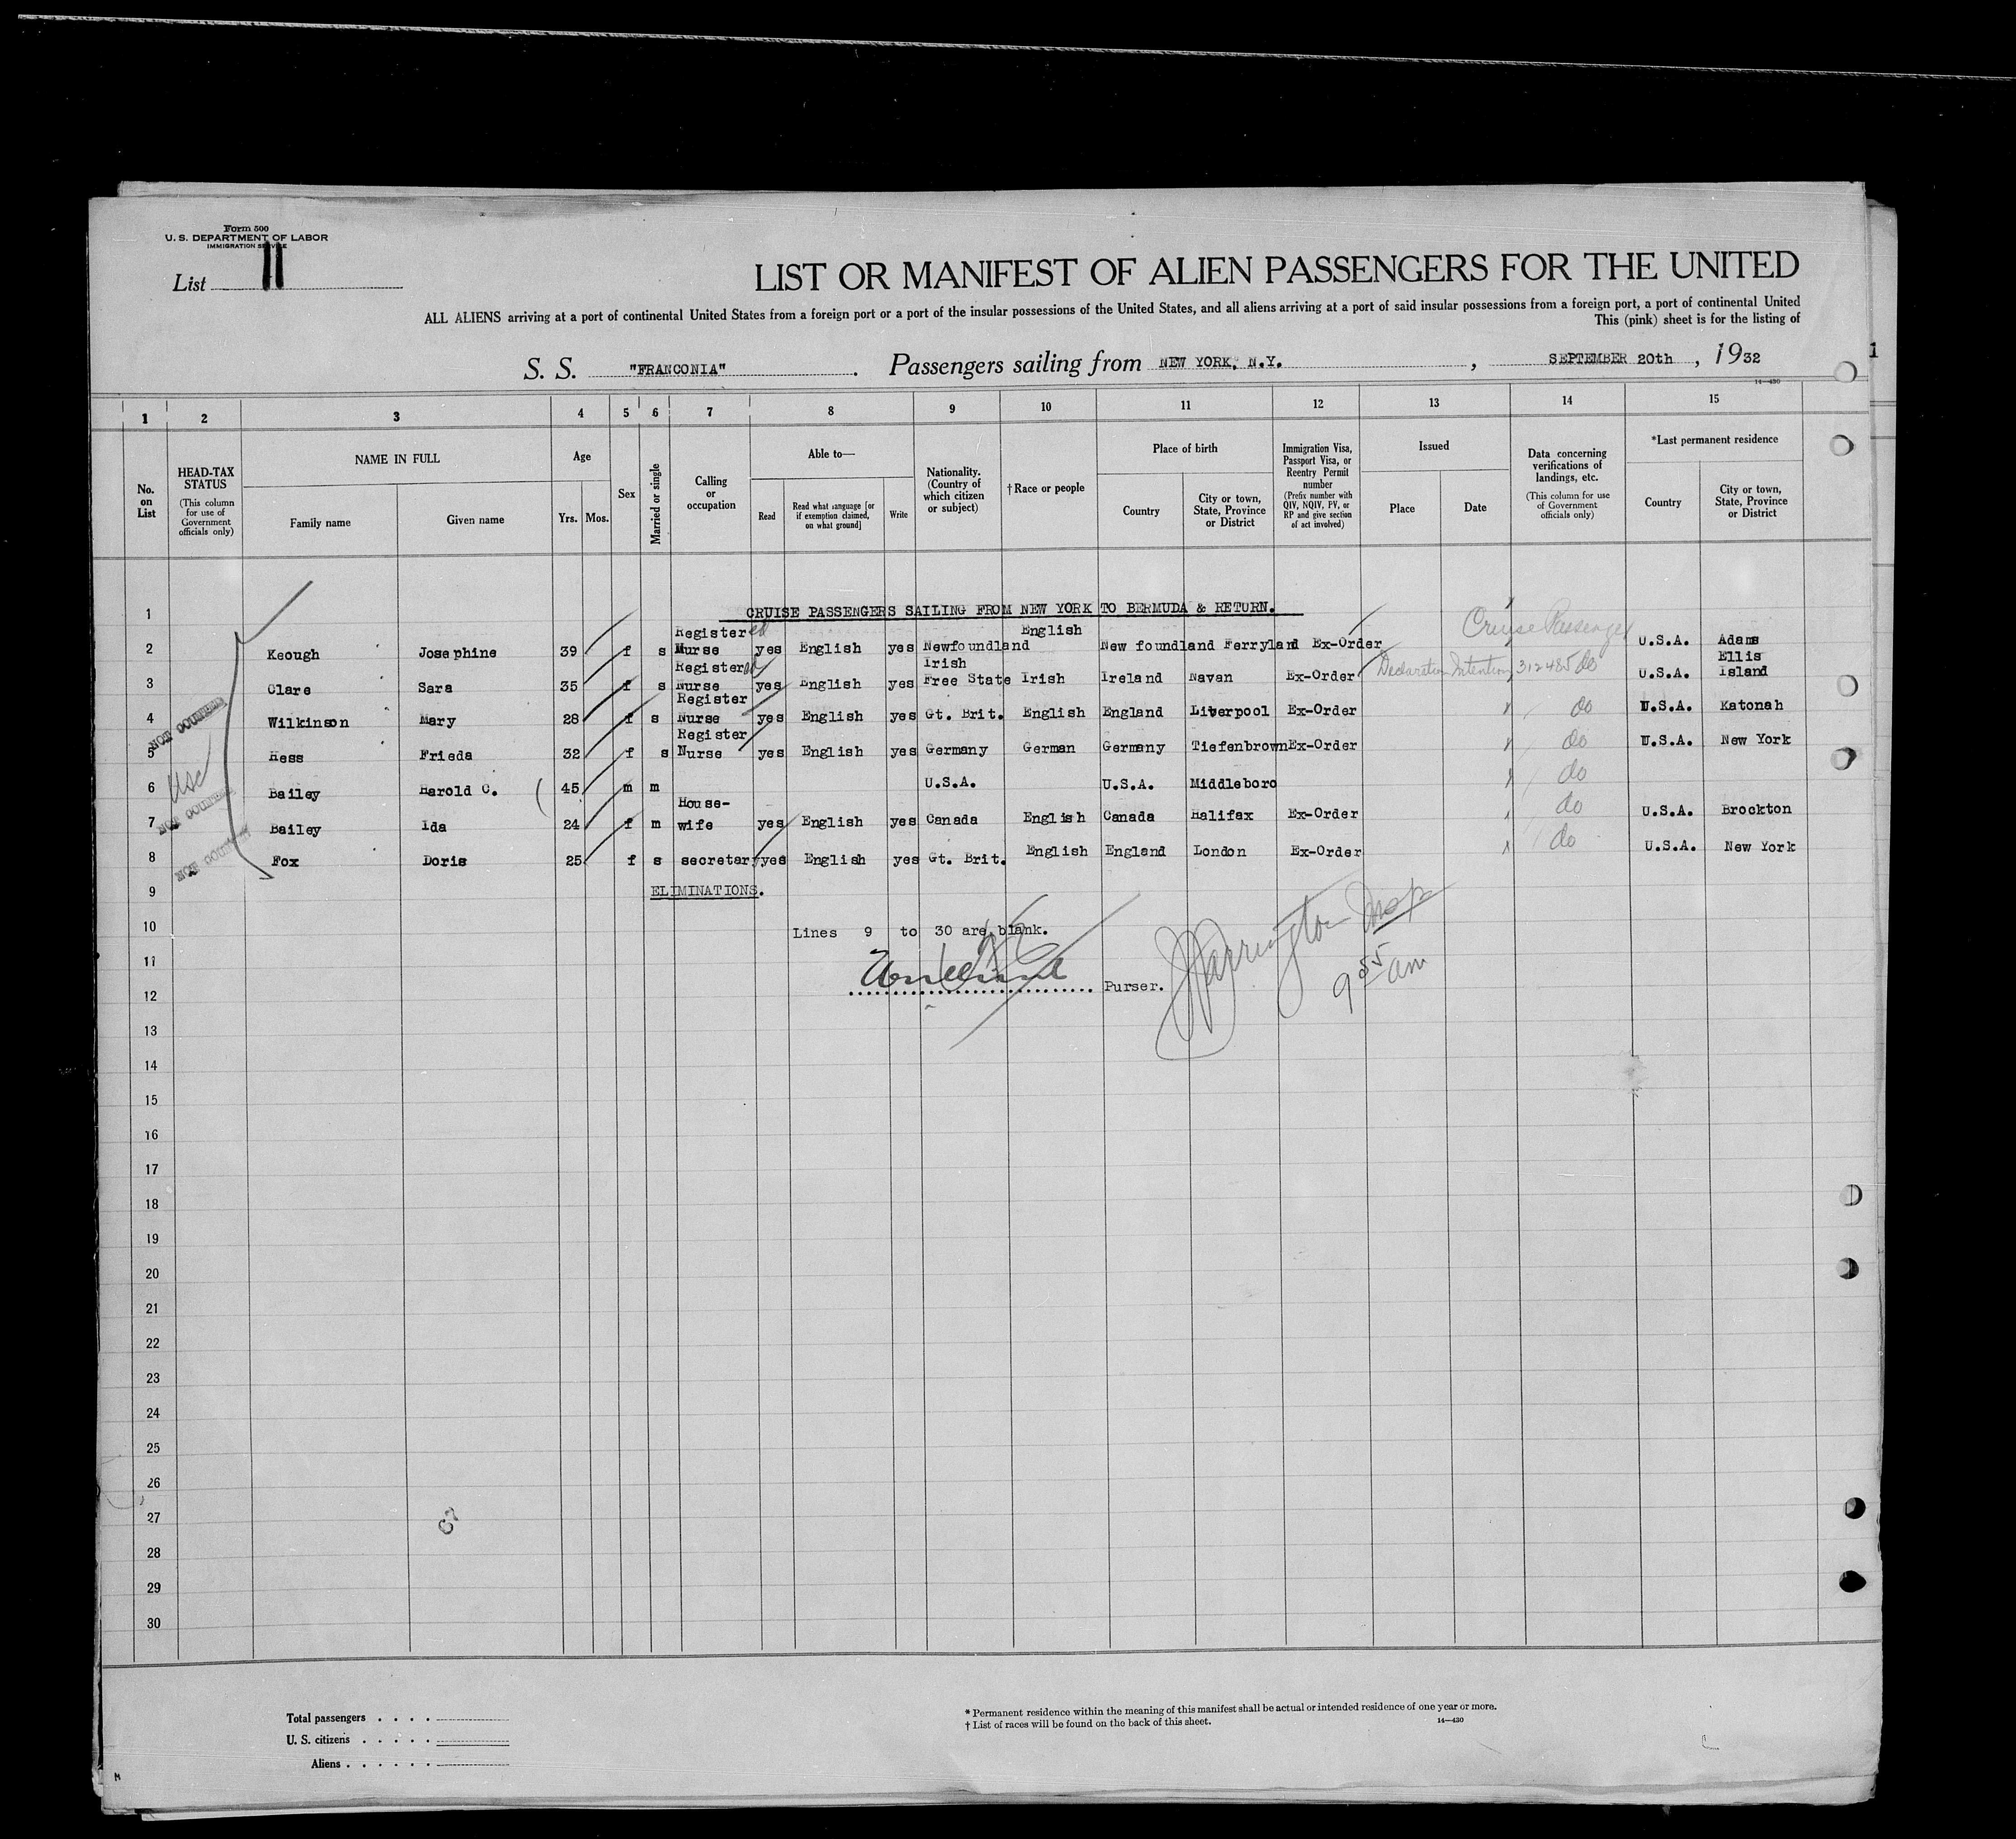 Form 500
U. S. DEPARTMENT OF LABOR
IMMIGRATION SERVICE
List 11
LIST OR MANIFEST OF ALIEN PASSENGERS FOR THE UNITED
ALL ALIENS arriving at a port of continental United States from a foreign port or a port of the insular possessions of the United States, and all aliens arriving at a port of said insular possessions from a foreign port, a port of continental United
This (pink) sheet is for the listing of
S. S. "FRANCONIA" . Passengers sailing from NEW YORK, N.Y. , SEPTEMBER 20th , 1932
1
14—430
1 2 3 4 5 6 7 8 9 10 11 12 13 14 15
No. on List
HEAD-TAX STATUS
(This column for use of Government officials only)
NAME IN FULL
Family name
Given name
Age
Yrs.
Mos.
Sex
Married or single
Calling or occupation
Able to—
Read
Read what language [or if exemption claimed, on what ground]
Write
Nationality. (Country of which citizen or subject)
† Race or people
Place of birth
Country
City or town, State, Province or District
Immigration Visa, Passport Visa, or Reentry Permit number
(Prefix number with QIV, NQIV, PV, or RP and give section of act involved)
Issued
Place
Date
Data concerning verifications of landings, etc.
(This column for use of Government officials only)
*Last permanent residence
Country
City or town, State, Province or District
1 CRUISE PASSENGERS SAILING FROM NEW YORK TO BERMUDA & RETURN.
Cruise Passenger
2 Keough Josephine 39 f s Registered Nurse yes English yes Newfoundland English New foundland Ferryland Ex-Order U.S.A. Adams
3 Clare Sara 35 f s Registered Nurse yes English yes Irish Free State Irish Ireland Navan Ex-Order Declaration Intention 312485 do U.S.A. Ellis Island
4 Wilkinson Mary 28 f s Register Nurse yes English yes Gt. Brit. English England Liverpool Ex-Order do U.S.A. Katonah
5 Hess Frieda 32 f s Register Nurse yes English yes Germany German Germany Tiefenbrown Ex-Order do U.S.A. New York
6 Bailey Harold C. 45 m m U.S.A. U.S.A. Middleboro do
7 Bailey Ida 24 f m House-wife yes English yes Canada English Canada Halifax Ex-Order do U.S.A. Brockton
8 Fox Doris 25 f s secretary yes English yes Gt. Brit. English England London Ex-Order do U.S.A. New York
NOT COUNTED
USC
NOT COUNTED
NOT COUNTED
9 ELIMINATIONS.
10 Lines 9 to 30 are blank.
11
12 Purser.
Harrington Insp
9 55 am
13
14
15
16
17
18
19
20
21
22
23
24
25
26
27
28
29
30
Total passengers . . . .
U. S. citizens . . . . .
Aliens . . . . . .
* Permanent residence within the meaning of this manifest shall be actual or intended residence of one year or more.
† List of races will be found on the back of this sheet.
14—430